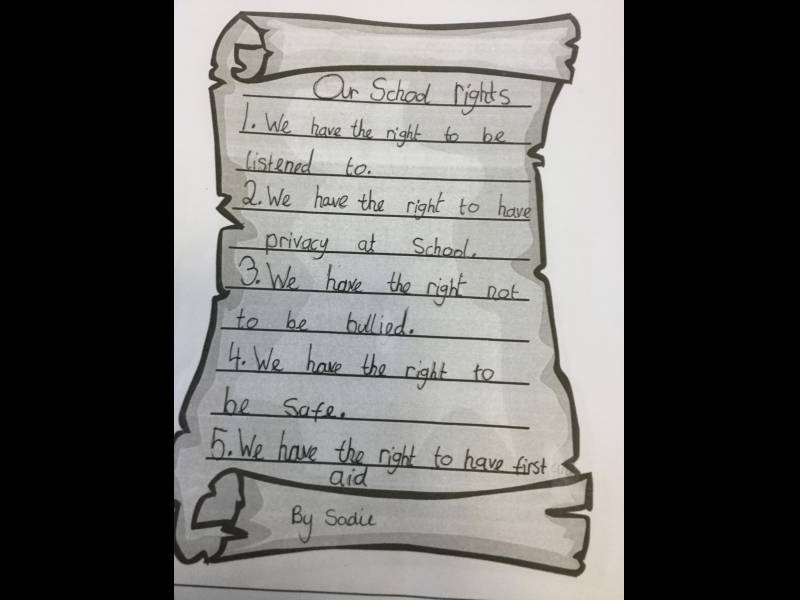 Our School rights
1. We have the right to be
listened to.
2. We have the right to have
privacy at School.
3. We have the right not
to be bullied.
4. We have the right to
be safe.
5. We have the right to have first
aid
By Sadie